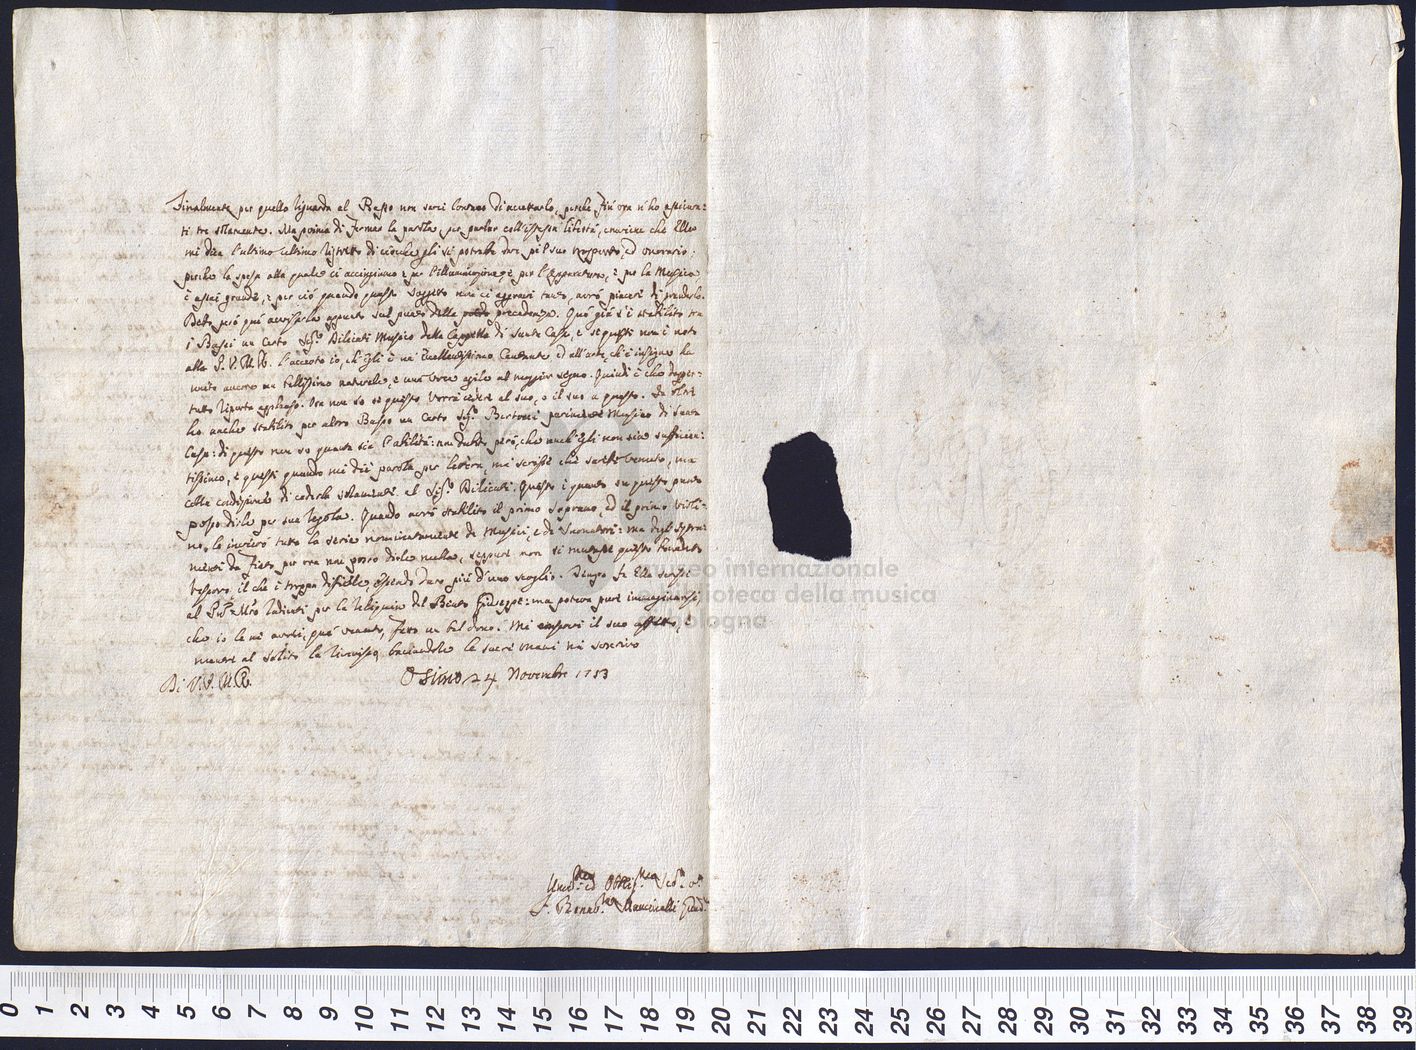 Finalmente per quello riguarda al Basso non sarei lontano di accettarlo, perché fin ora n'ho assicura-
ti tre solamente. Ma prima di fermar la parola per parlar coll'istessa libertà, conviene che Ella
mi dica l'ultimo ultimo ristretto di ciò che gli si potrebbe dare pel suo trasporto, ed onorario:
perche la spesa alla quale ci accingiamo e per l'illuminazione e per l'Apparatura, e per la Musica
è assai grande, e per ciò quando questo soggetto non ci aggravi tanto, avrò piacere di prenderlo.
Debbo però quì avvisarla appunto sul punto della precedenza. Quì già s'è stabilito tra
i Bassi un certo Sig.r Biliati Musico della Cappella di Santa Casa, e se questi non è noto
alla P. V. M. R. l'accerto io, ch'Egli è un' Eccellentissimo Cantante, ed all'arte, ch'è insigne ha
unito ancora un bellissimo naturale, e una voce agile al maggior segno. Quindi è che dapper-
tutto riporta applauso. Ora non so se questo vorrà cedere al suo, o il suo a questo. In oltre
ho anche stabilito per altro Basso un certo Sig.r Bertocci parimente Musico di Santa
Casa: di questo non so quanta sia l'abilità: non dubito però, che anch'Egli non sia sufficien-
tissimo, e questi quando mi diè parola per lettera, mi scrisse che sarebbe venuto, ma
colla condizione di cederla solamente al Sig.r Biliati. Questo è quanto su questo punto
posso dirle per sua regola. Quando avrò stabilito il primo Soprano, ed il primo Violi-
no, le invierò tutta la serie nominatamente de Musici, e de Suonatori: ma degl'Istru-
menti da Fiato per ora non posso dirle nulla, seppure non si mutasse questo
il che è troppo difficile essendo duro più d'uno scoglio. Ella scrisse
al P. Mro per la Reliquia del Beato Giuseppe: ma poteva pure immaginarsi,
che io le ne avrei, quì venendo, fatto un bel dono. Mi conservi il suo affetto, e
mentre al solito la riverisco, baciandole le sacre mani mi soscrivo
Di V. P. M. R. Osimo 24 Novembre 1753
Umil.mo ed Obblig.mo Ser.e v.o
F. Bonav.ra Mancinelli
museo internazionale
e biblioteca della musica
di bologna
0 1 2 3 4 5 6 7 8 9 10 11 12 13 14 15 16 17 18 19 20 21 22 23 24 25 26 27 28 29 30 31 32 33 34 35 36 37 38 39